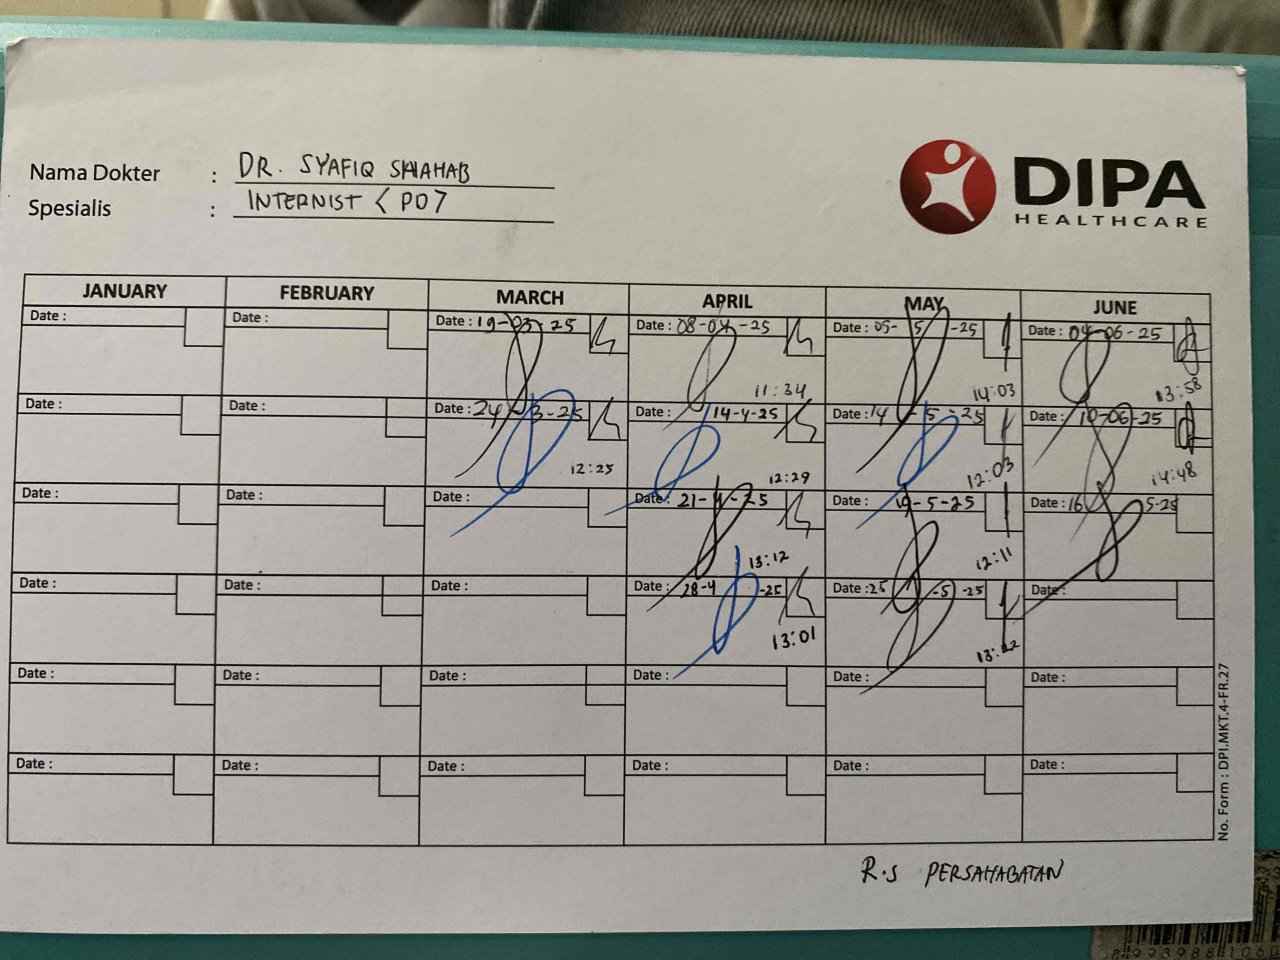 Nama Dokter : DR. SYAFIQ SHAHAB
Spesialis : INTERNIST < PO7
DIPA
HEALTHCARE
JANUARY FEBRUARY MARCH APRIL MAY JUNE
Date : Date : Date : 19-03-25 Date : 08-04-25 Date : 05-5-25 Date : 04-06-25
11:34 14:03 13:58
Date : Date : Date : 24-3-25 Date : 14-4-25 Date : 14-5-25 Date : 10-06-25
12:25 12:29 12:03 14:48
Date : Date : Date : Date : 21-4-25 Date : 19-5-25 Date : 16
13:12 12:11
Date : Date : Date : Date : 28-4-25 Date : 25-5-25 Date :
13:01
Date : Date : Date : Date : Date : Date :
Date : Date : Date : Date : Date : Date :
No. Form : DPI.MKT.4-FR.27
R.S PERSAHABATAN